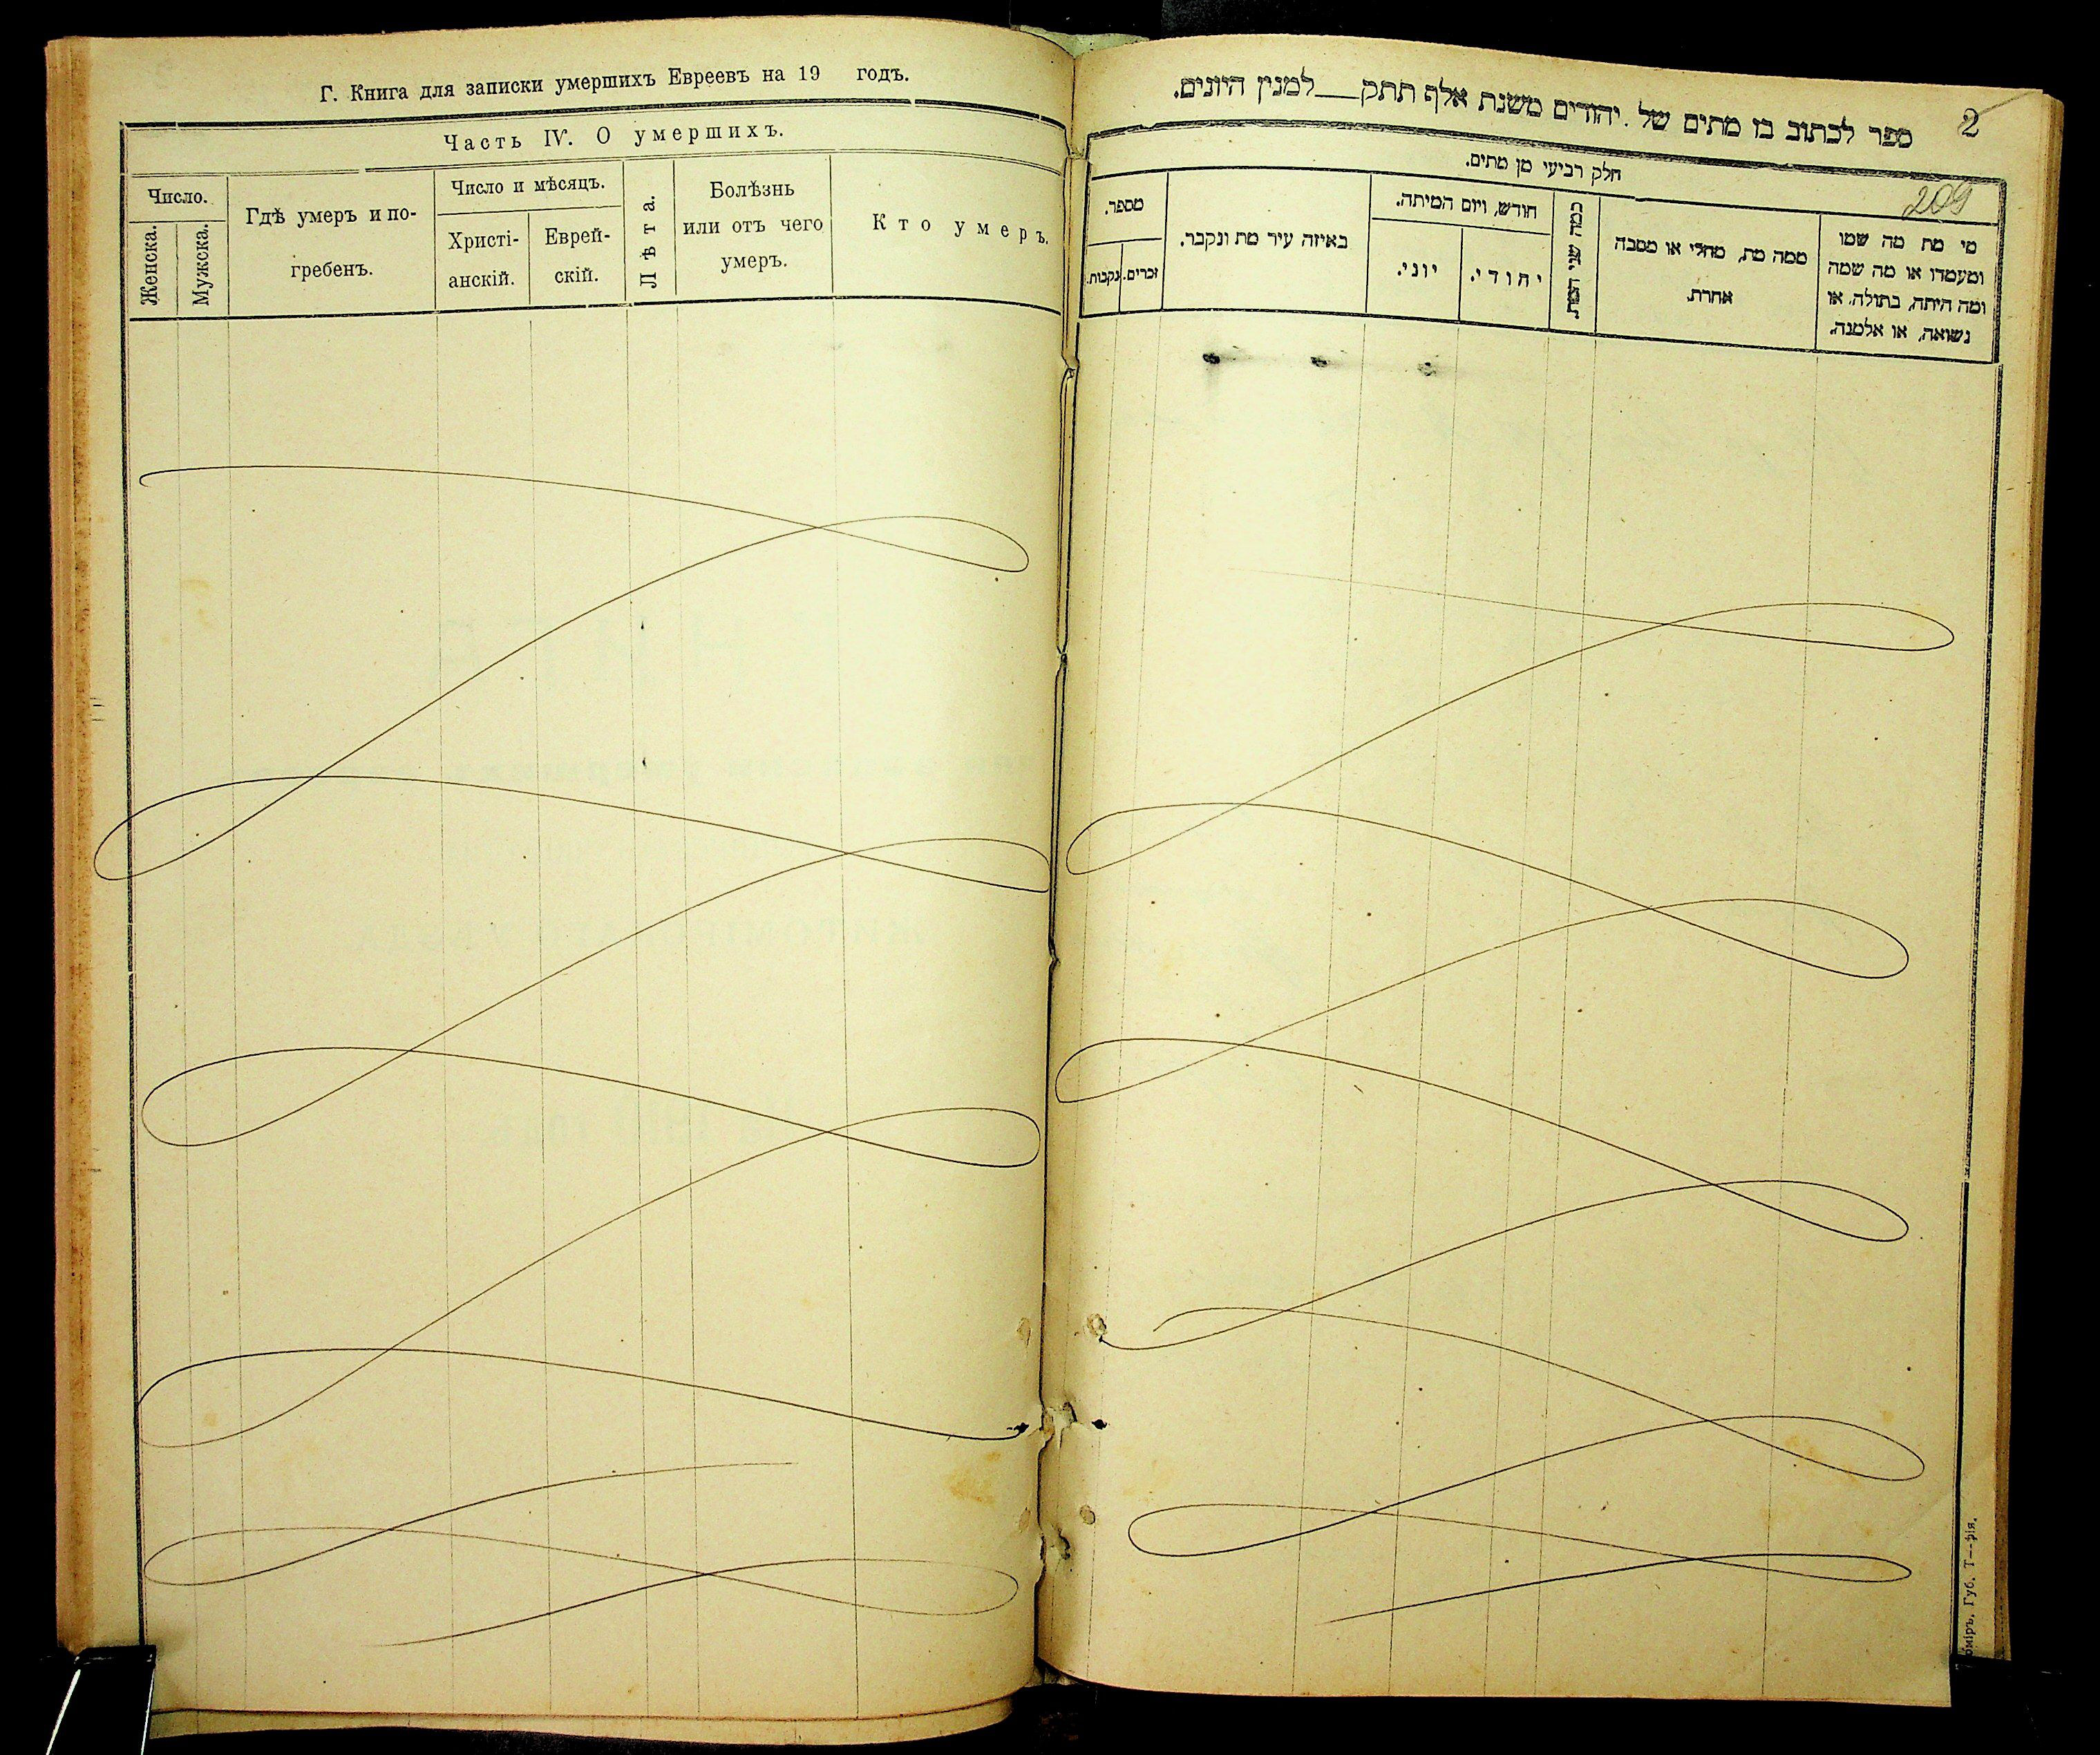 Г. Книга для записки умершихъ Евреевъ на 19 годъ.
Часть IV. О умершихъ.
Число.
Женска.
Мужска.
Гдѣ умеръ и по-
гребенъ.
Число и мѣсяцъ.
Христі-
анскій.
Еврей-
скій.
Лѣта.
Болѣзнь
или отъ чего
умеръ.
Кто умеръ.
2
ספר לכתוב בו מתים של יהודים משנת אלף תתק__למנין היונים.
חלק רביעי מן מתים.
209
מספר.
נקבות.
זכרים.
באיזה עיר מת ונקבר.
חודש, ויום המיתה.
יוני.
יהודי.
כמה שני המת.
ממה מת, מחלי או מסבה
אחרת.
מי מת מה שמו
ומעמדו או מה שמה
ומה היתה, בתולה, או
נשואה, או אלמנה.
оміръ, Губ. Т—фія.